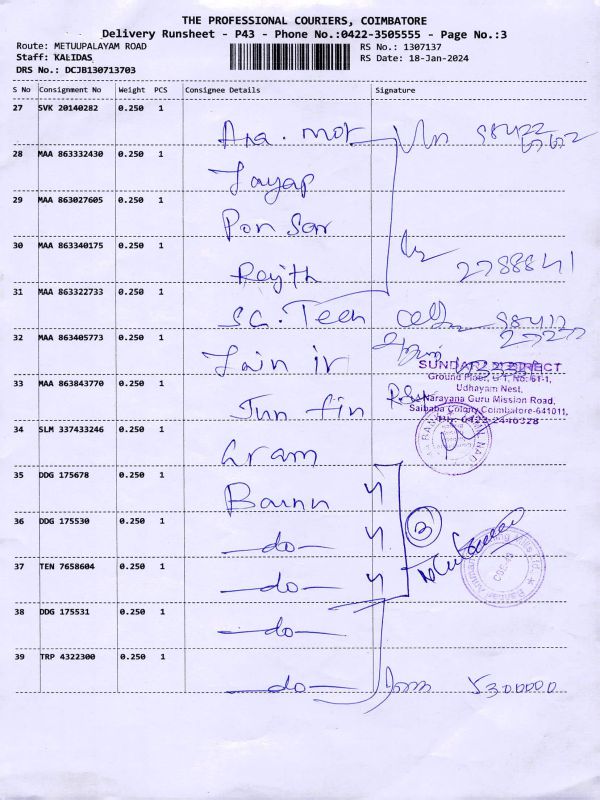 THE PROFESSIONAL COURIERS, COIMBATORE
Delivery Runsheet - P43 - Phone No.:0422-3505555 - Page No.:3
Route: METUUPALAYAM ROAD
RS No.: 1307137
Staff: KALIDAS
RS Date: 18-Jan-2024
DRS No.: DCJB130713703
S No Consignment No Weight PCS Consignee Details Signature
27 SVK 20140282 0.250 1
28 MAA 863332430 0.250 1
Jayap
29 MAA 863027605 0.250 1
Pon Sar
30 MAA 863340175 0.250 1
Rajth 2788841
31 MAA 863322733 0.250 1
SG. Teen
32 MAA 863405773 0.250 1
Jain ir
SUNDARAM DIRECT
33 MAA 863843770 0.250 1
Ground Floor, G-1, No: 61-1,
Udhayam Nest,
Narayana Guru Mission Road,
Saibaba Colony, Coimbatore-641011,
Jun fin
Ph: 0422-2446328
34 SLM 337433246 0.250 1
Gram
35 DDG 175678 0.250 1
36 DDG 175530 0.250 1
-do-
3
37 TEN 7658604 0.250 1
-do-
38 DDG 175531 0.250 1
-do-
39 TRP 4322300 0.250 1
-do- 5300000